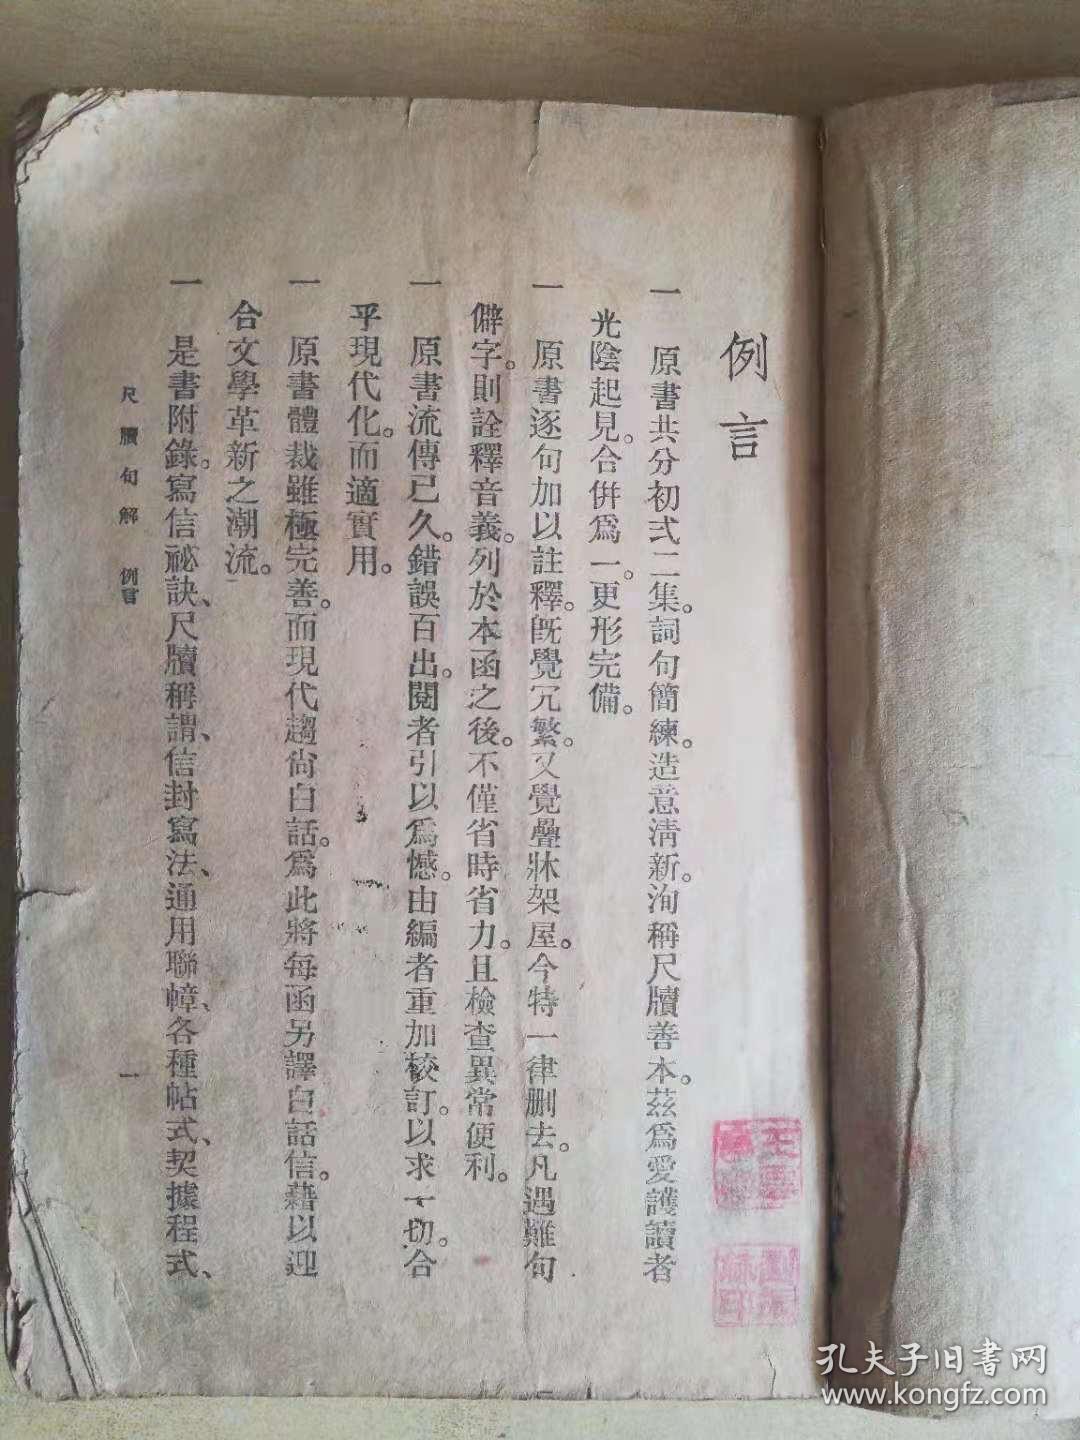 例言
一　原書共分初弍二集。詞句簡練。造意清新。洵稱尺牘善本。茲爲愛護讀者
光陰起見。合併爲一。更形完備。
一　原書逐句加以註釋。旣覺冗繁。又覺疊牀架屋。今特一律删去。凡遇難句
僻字。則詮釋音義。列於本函之後。不僅省時省力。且檢查異常便利。
一　原書流傳已久。錯誤百出。閱者引以爲憾。由編者重加校訂。以求一切。合
乎現代化。而適實用。
一　原書體裁雖極完善。而現代趨尙白話。爲此將每函另譯白話信。藉以迎
合文學革新之潮流。
一　是書附錄。寫信祕訣、尺牘稱謂、信封寫法、通用聯幛、各種帖式、契據程式、
尺牘句解　例言
一
孔夫子旧书网
www.kongfz.com